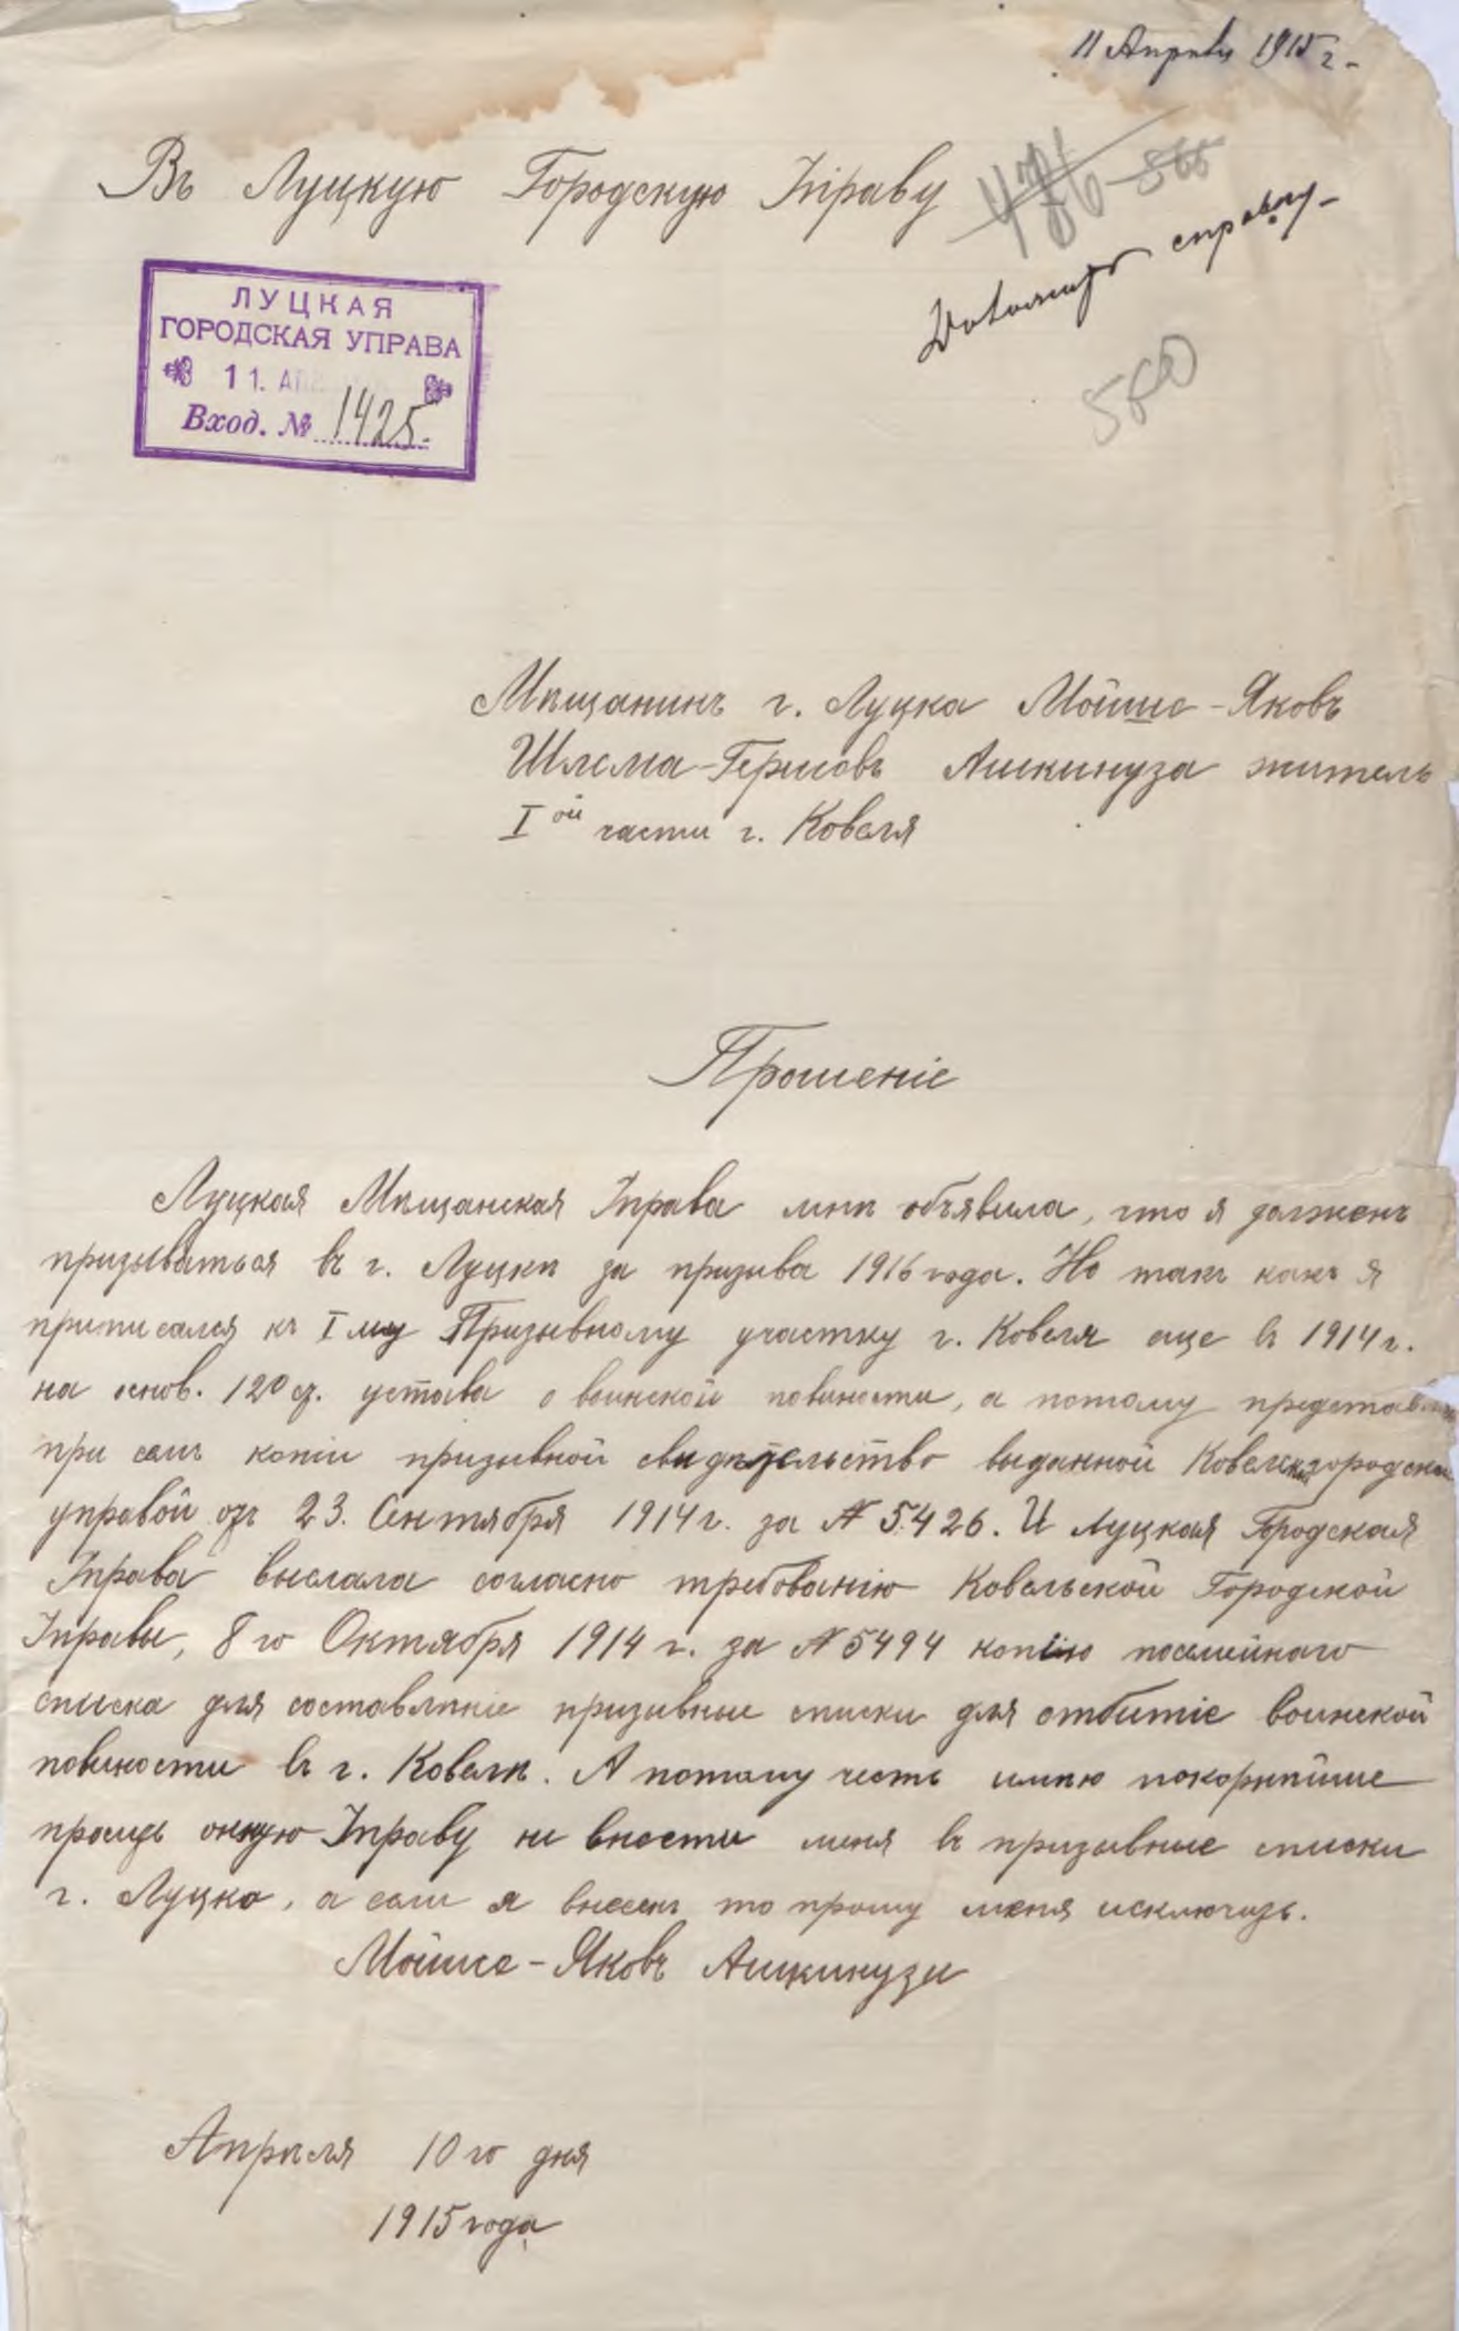 11 Апрѣля 1915 г.
Въ Луцкую Городскую Управу
486 565
справку
560
ЛУЦКАЯ
ГОРОДСКАЯ УПРАВА
11. АП
Вход. № 1425.
Мѣщанинъ г. Луцка Мойше-Яковъ
Шлема-Гершовъ Ашкинуза житель
I ой части г. Ковеля
Прошеніе
Луцкая Мѣщанская Управа мнѣ объявила, что я долженъ
призываться въ г. Луцкѣ за призыва 1916 года. Но такъ какъ я
приписался къ I му Призывному участку г. Ковеля еще въ 1914 г.
на основ. 120 ст. устава о воинской повиности, а потому представ
при семъ копіи призывной свидѣтельство выданной Ковельской городск
управой отъ 23. Сентября 1914 г. за № 5426. И Луцкая Городская
Управа выслала согласно требованію Ковельской Городской
Управы, 8 го Октября 1914 г. за № 5494 копію посемейнаго
списка для составлѣніе призывные списки для отбитіе воинской
повиности въ г. Ковелѣ. А потому честь имѣю покорнѣйше
просить оную Управу не внести меня въ призывные списки
г. Луцка, а если я внесенъ то прошу меня исключить.
Мойше-Яковъ Ашкинузи
Апрѣля 10 го дня
1915 года